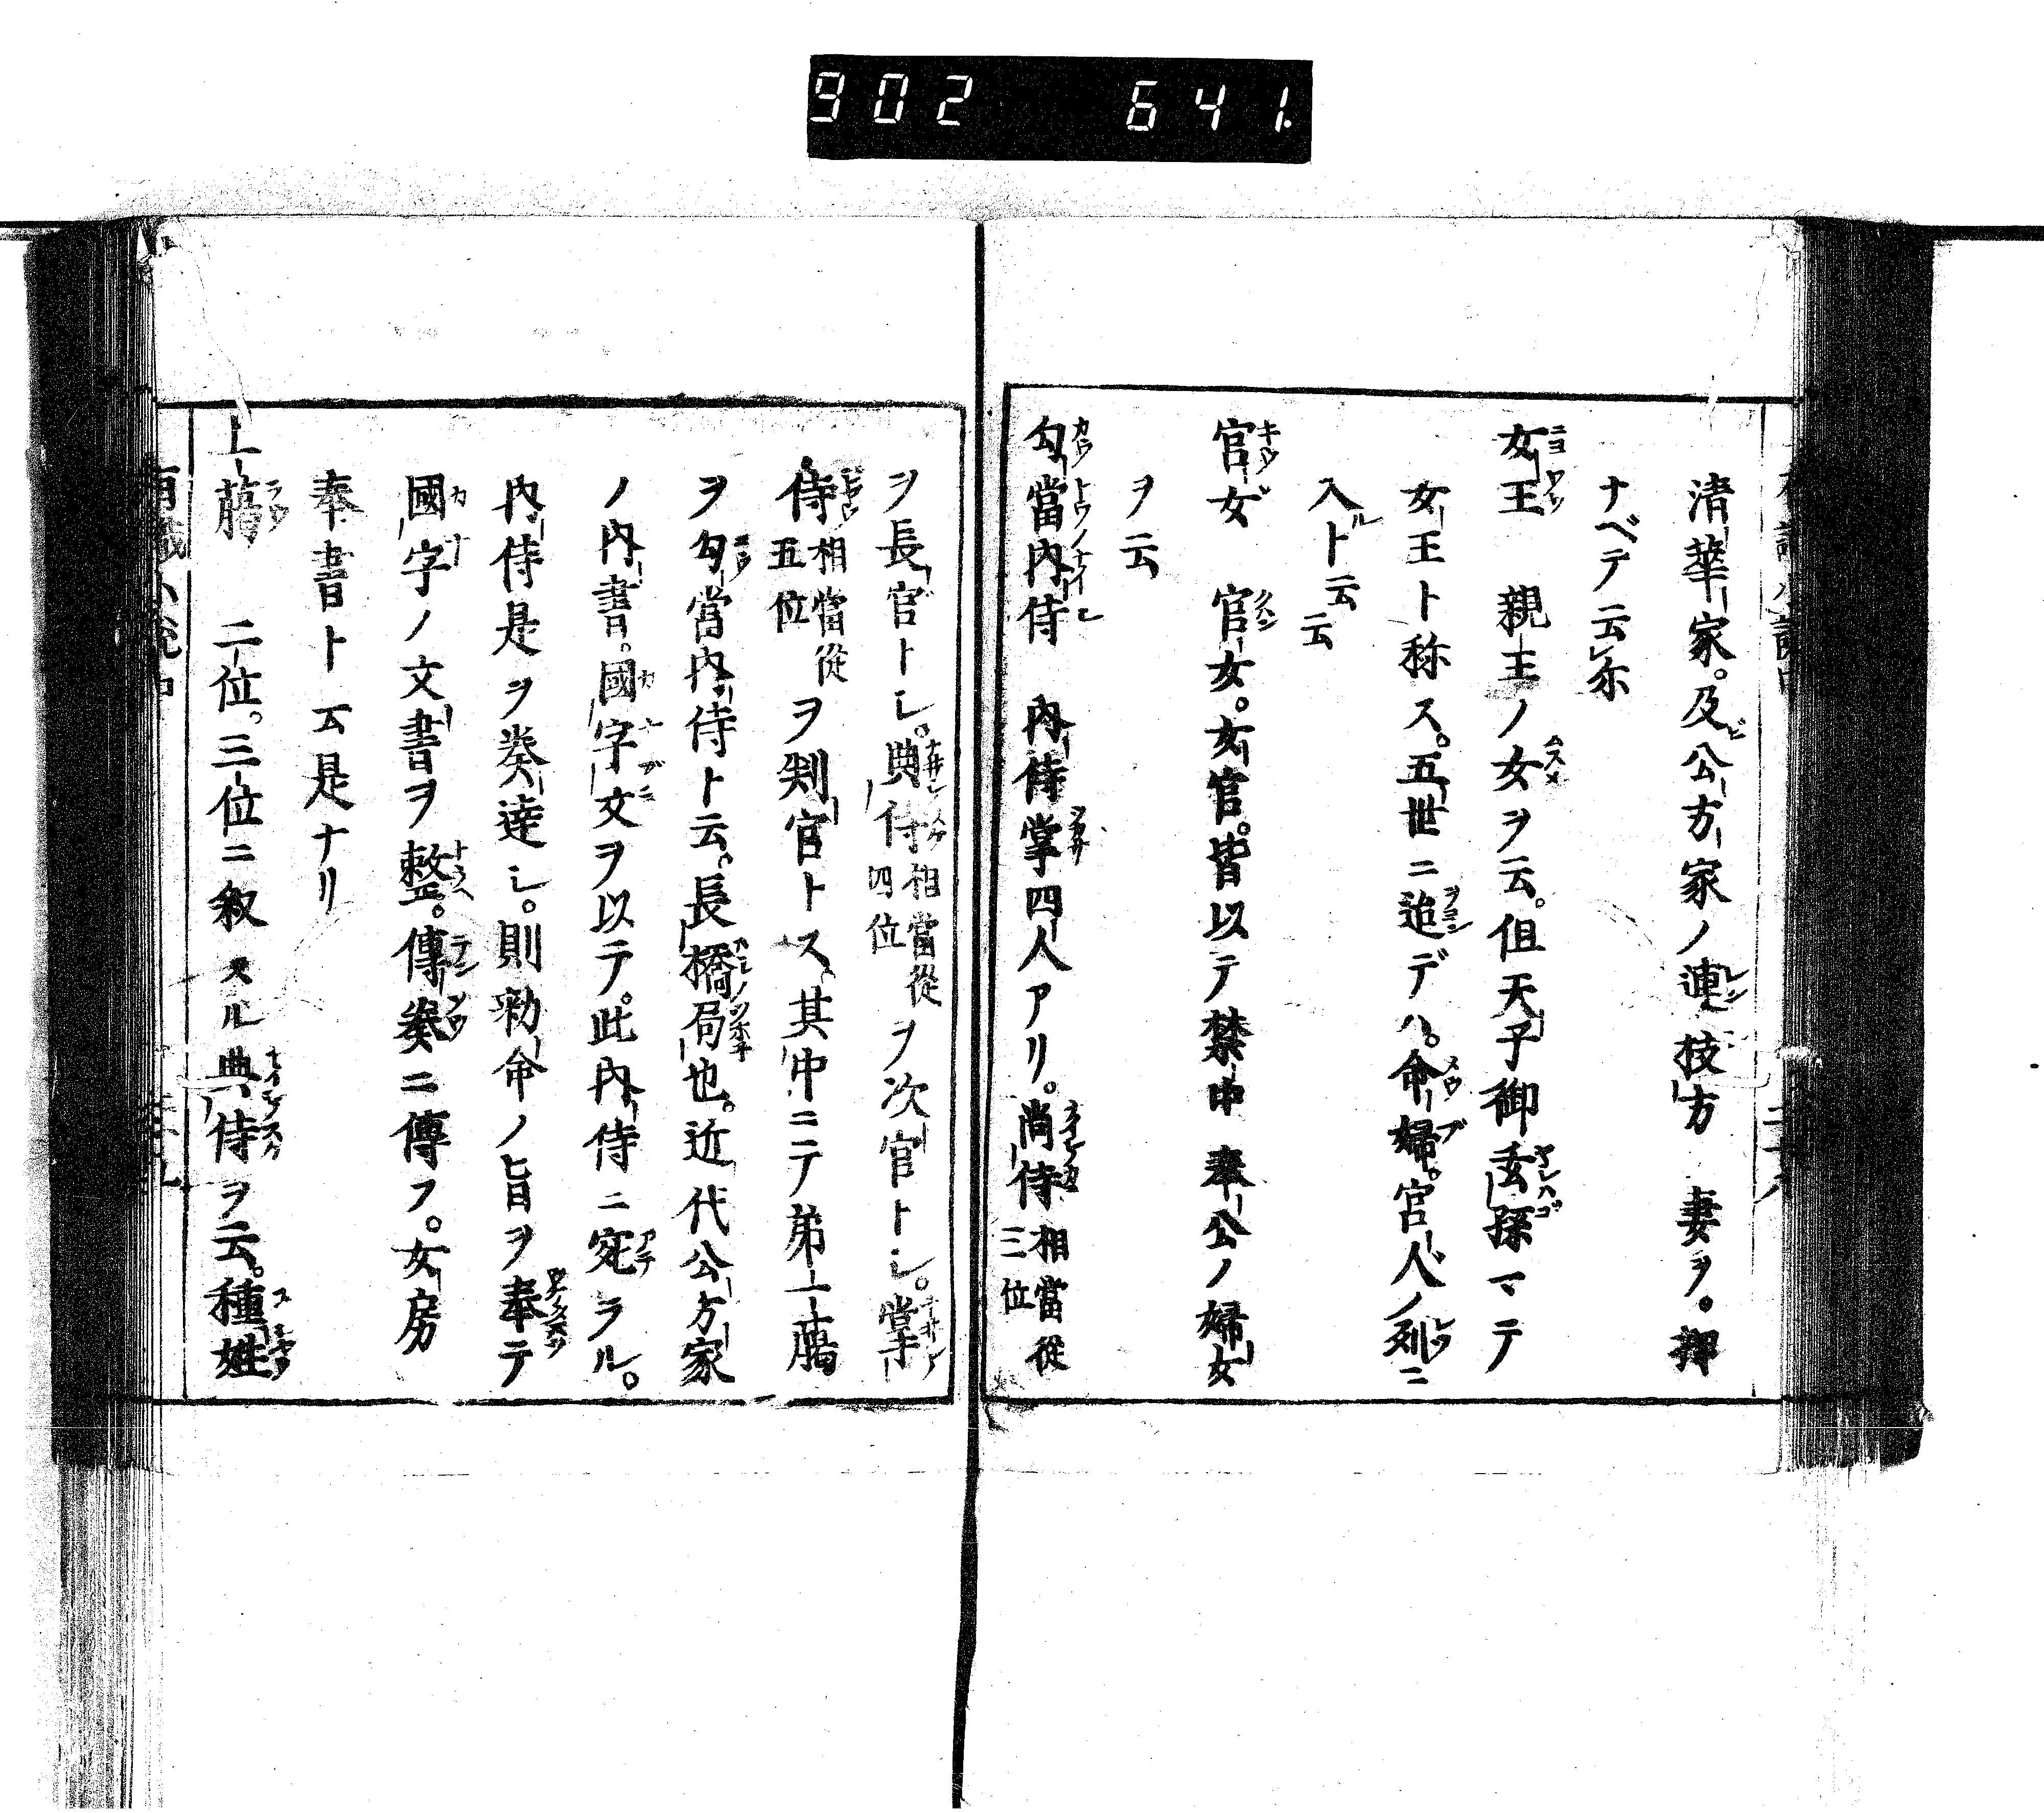 902 641.
清華家。及ビ公方家ノ連枝方 妻ヲ。押
ナベテ云レ尓
女王 親王ノ女ヲ云。但天子御玄孫マテ
女王ト称ス。五世ニ追デハ。命婦。官人ノ列ニ
入ルト云云
官女 官女。女官。皆以テ禁中奉公ノ婦女
ヲ云
勾當内侍 内侍掌四人アリ。尚侍相當從三位
ヲ長官トシ。典侍相當從四位ヲ次官トシ。掌
侍相當從五位ヲ判官トス。其中ニテ第一上臈
ヲ勾當内侍ト云。長橋局也。近代公方家
ノ内書。國字文ヲ以テ。此内侍ニ宛ラル。
内侍是ヲ奏達シ。則勅命ノ旨ヲ奉テ
國字ノ文書ヲ整。傳奏ニ傳フ。女房
奉書ト云是ナリ
上臈 二位。三位ニ叙スル典侍ヲ云。種姓